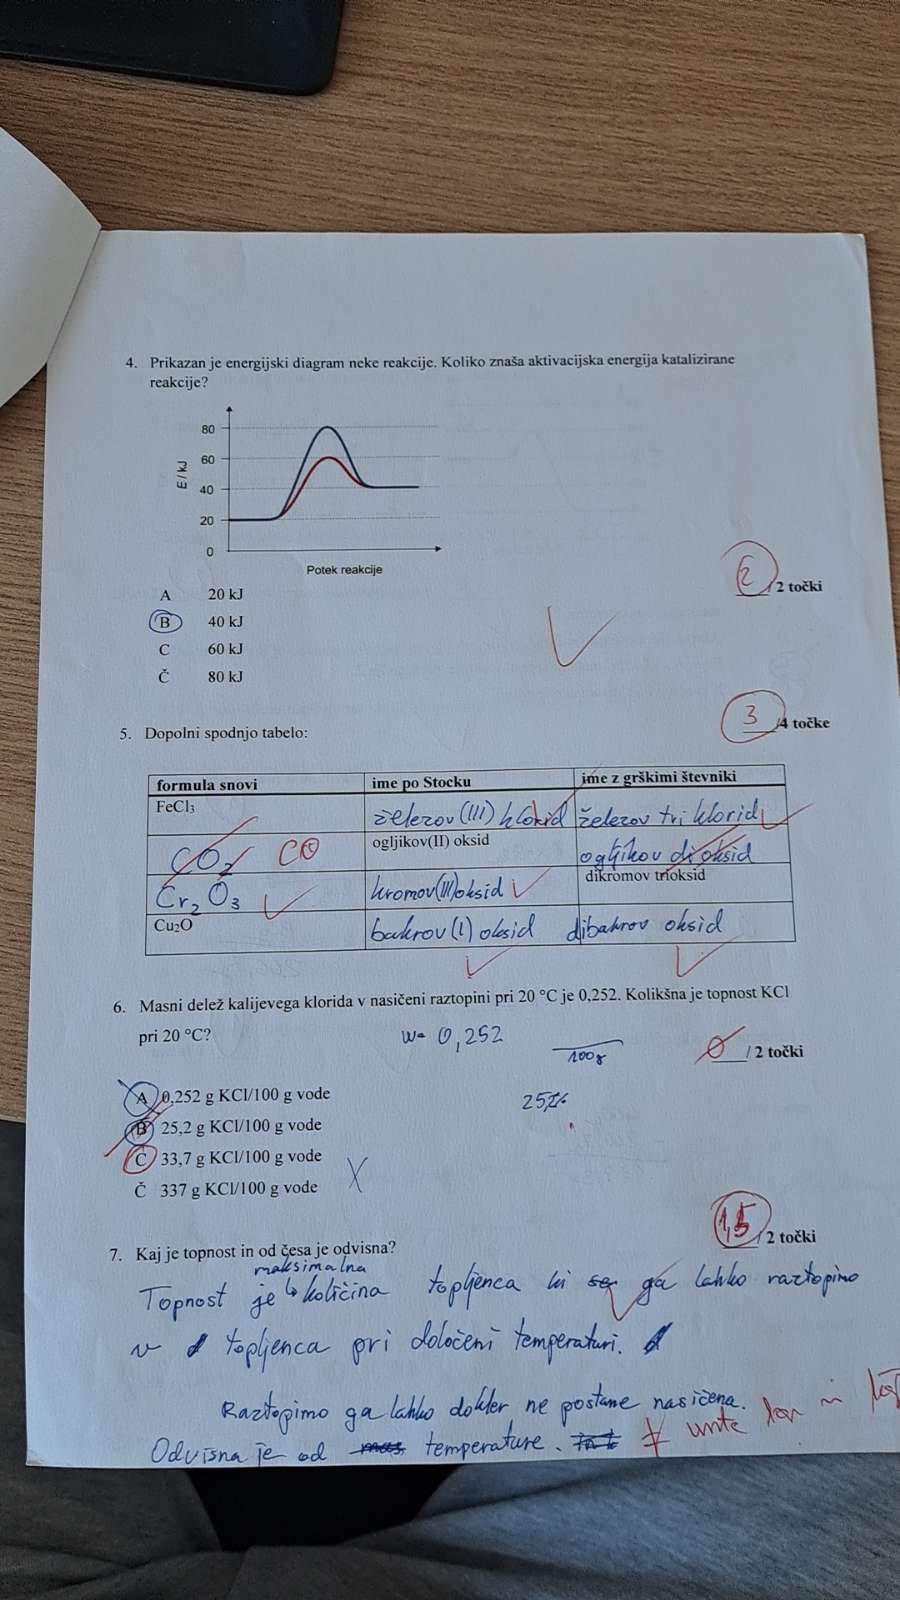 4. Prikazan je energijski diagram neke reakcije. Koliko znaša aktivacijska energija katalizirane
reakcije?
E / kJ
80
60
40
20
0
Potek reakcije
2 / 2 točki
A 20 kJ
B 40 kJ
C 60 kJ
Č 80 kJ
3 /4 točke
5. Dopolni spodnjo tabelo:
formula snovi ime po Stocku ime z grškimi števniki
FeCl3 železov(III) klorid železov tri klorid
CO2 CO ogljikov(II) oksid ogljikov dioksid
Cr2O3 kromov(III)oksid dikromov trioksid
Cu2O bakrov(I) oksid dibakrov oksid
6. Masni delež kalijevega klorida v nasičeni raztopini pri 20 °C je 0,252. Kolikšna je topnost KCl
pri 20 °C?
w= 0,252
100g
0 / 2 točki
A 0,252 g KCl/100 g vode
B 25,2 g KCl/100 g vode
C 33,7 g KCl/100 g vode
Č 337 g KCl/100 g vode
1,5 / 2 točki
7. Kaj je topnost in od česa je odvisna?
maksimalna
Topnost je količina topljenca ki ga lahko raztopimo
v topljenca pri določeni temperaturi.
Raztopimo ga lahko dokler ne postane nasičena.
Odvisna je od temperature.